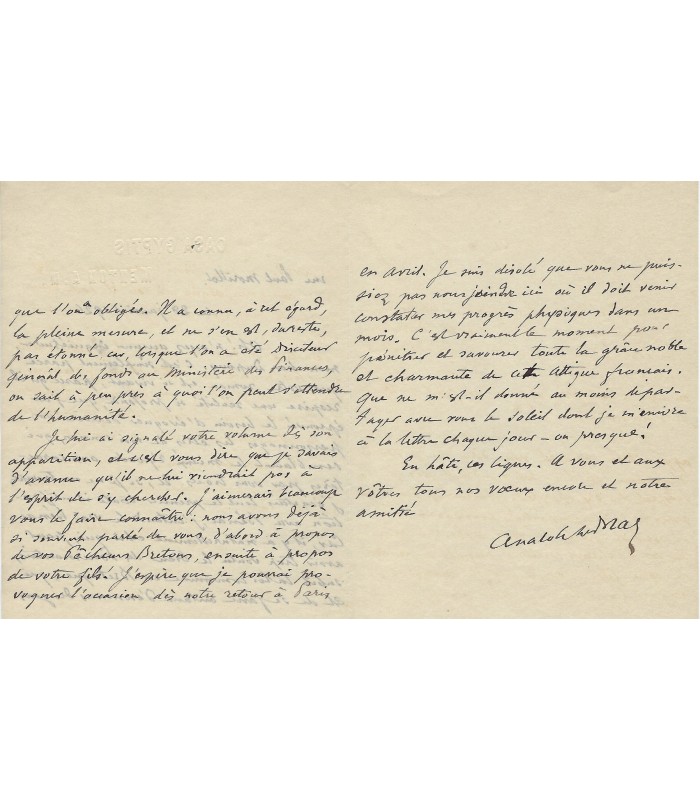 que l'on a obligés. Il a connu, à cet égard,
la pleine mesure, et ne s'en est, du reste,
pas étonné car, lorsque l'on a été Directeur
Général des fonds au Ministère des Finances,
on sait à peu près à quoi l'on peut s'attendre
de l'humanité.
Je lui ai signalé votre volume dès son
apparition, et c'est vous dire que je savais
d'avance qu'il ne lui viendrait pas à
l'esprit de s'y chercher. J'aimerais beaucoup
vous le faire connaître : nous avons déjà
si souvent parlé de vous, d'abord à propos
de vos Pêcheurs Bretons, ensuite à propos
de votre fils. J'espère que je pourrai pro-
voquer l'occasion dès notre retour à Paris
en avril. Je suis désolé que vous ne puis-
siez pas nous joindre ici où il doit venir
constater mes progrès physiques dans un
mois. C'est vraiment le moment pour
pénétrer et savourer toute la grâce noble
et charmante de cette Attique français.
Que ne m'est-il donné au moins de par-
tager avec vous le soleil dont je m'enivre
à la lettre chaque jour – ou presque !
En hâte, ces lignes. A vous et aux
vôtres tous nos vœux encore et notre
amitié
Anatole Le Braz